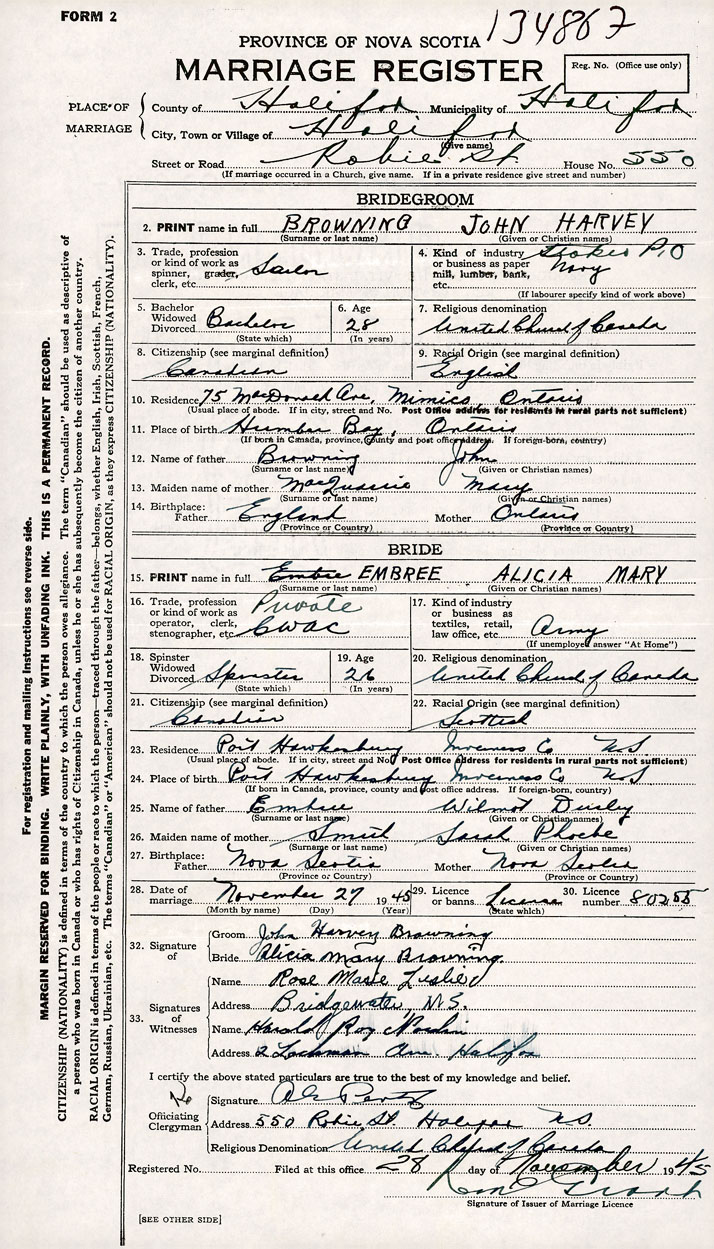 FORM 2
134867
PROVINCE OF NOVA SCOTIA
MARRIAGE REGISTER
Reg. No. (Office use only)
PLACE OF MARRIAGE
County of Halifax Municipality of Halifax
City, Town or Village of Halifax
(Give name)
Street or Road Robie St. House No. 550
(If marriage occurred in a Church, give name. If in a private residence give street and number)
BRIDEGROOM
2. PRINT name in full BROWNING JOHN HARVEY
(Surname or last name) (Given or Christian names)
3. Trade, profession or kind of work as spinner, grader, clerk, etc. Sailor
4. Kind of industry or business as paper mill, lumber, bank, etc. Stoker P.O Navy
(If labourer specify kind of work above)
5. Bachelor Widowed Divorced Bachelor
(State which)
6. Age 28
(In years)
7. Religious denomination
United Church of Canada
8. Citizenship (see marginal definition)
Canadian
9. Racial Origin (see marginal definition)
English
10. Residence 75 MacDonald Ave, Mimico, Ontario
(Usual place of abode. If in city, street and No. Post Office address for residents in rural parts not sufficient)
11. Place of birth Humber Bay, Ontario
(If born in Canada, province, county and post office address. If foreign-born, country)
12. Name of father Browning John
(Surname or last name) (Given or Christian names)
13. Maiden name of mother MacQuarrie Mary
(Surname or last name) (Given or Christian names)
14. Birthplace: Father England Mother Ontario
(Province or Country) (Province or Country)
BRIDE
15. PRINT name in full Embree EMBREE ALICIA MARY
(Surname or last name) (Given or Christian names)
16. Trade, profession or kind of work as operator, clerk, stenographer, etc. Private CWAC
17. Kind of industry or business as textiles, retail, law office, etc. Army
(If unemployed answer "At Home")
18. Spinster Widowed Divorced Spinster
(State which)
19. Age 26
(In years)
20. Religious denomination
United Church of Canada
21. Citizenship (see marginal definition)
Canadian
22. Racial Origin (see marginal definition)
Scottish
23. Residence Port Hawkesbury Inverness Co N.S
(Usual place of abode. If in city, street and No. Post Office address for residents in rural parts not sufficient)
24. Place of birth Port Hawkesbury Inverness Co N.S
(If born in Canada, province, county and post office address. If foreign-born, country)
25. Name of father Embree Wilmot
(Surname or last name) (Given or Christian names)
26. Maiden name of mother Smith Sarah Phoebe
(Surname or last name) (Given or Christian names)
27. Birthplace: Father Nova Scotia Mother Nova Scotia
(Province or Country) (Province or Country)
28. Date of marriage November 27 1945
(Month by name) (Day) (Year)
29. Licence or banns License
(State which)
30. Licence number 80255
32. Signature of
Groom John Harvey Browning
Bride Alicia Mary Browning
33. Signatures of Witnesses
Name Rose Marie Leslie
Address Bridgewater N.S.
Name Harold Roy
Address 2 Ave. Halifax
I certify the above stated particulars are true to the best of my knowledge and belief.
Officiating Clergyman
Signature
Address 550 Robie St. Halifax N.S.
Religious Denomination United Church of Canada
Registered No. Filed at this office 28 day of November 1945
Grant
Signature of Issuer of Marriage Licence
[SEE OTHER SIDE]
For registration and mailing instructions see reverse side.
MARGIN RESERVED FOR BINDING. WRITE PLAINLY, WITH UNFADING INK. THIS IS A PERMANENT RECORD.
CITIZENSHIP (NATIONALITY) is defined in terms of the country to which the person owes allegiance. The term "Canadian" should be used as descriptive of
a person who was born in Canada or who has rights of Citizenship in Canada, unless he or she has subsequently become the citizen of another country.
RACIAL ORIGIN is defined in terms of the people or race to which the person—traced through the father—belongs, whether English, Irish, Scottish, French,
German, Russian, Ukrainian, etc. The terms "Canadian" or "American" should not be used for RACIAL ORIGIN, as they express CITIZENSHIP (NATIONALITY).